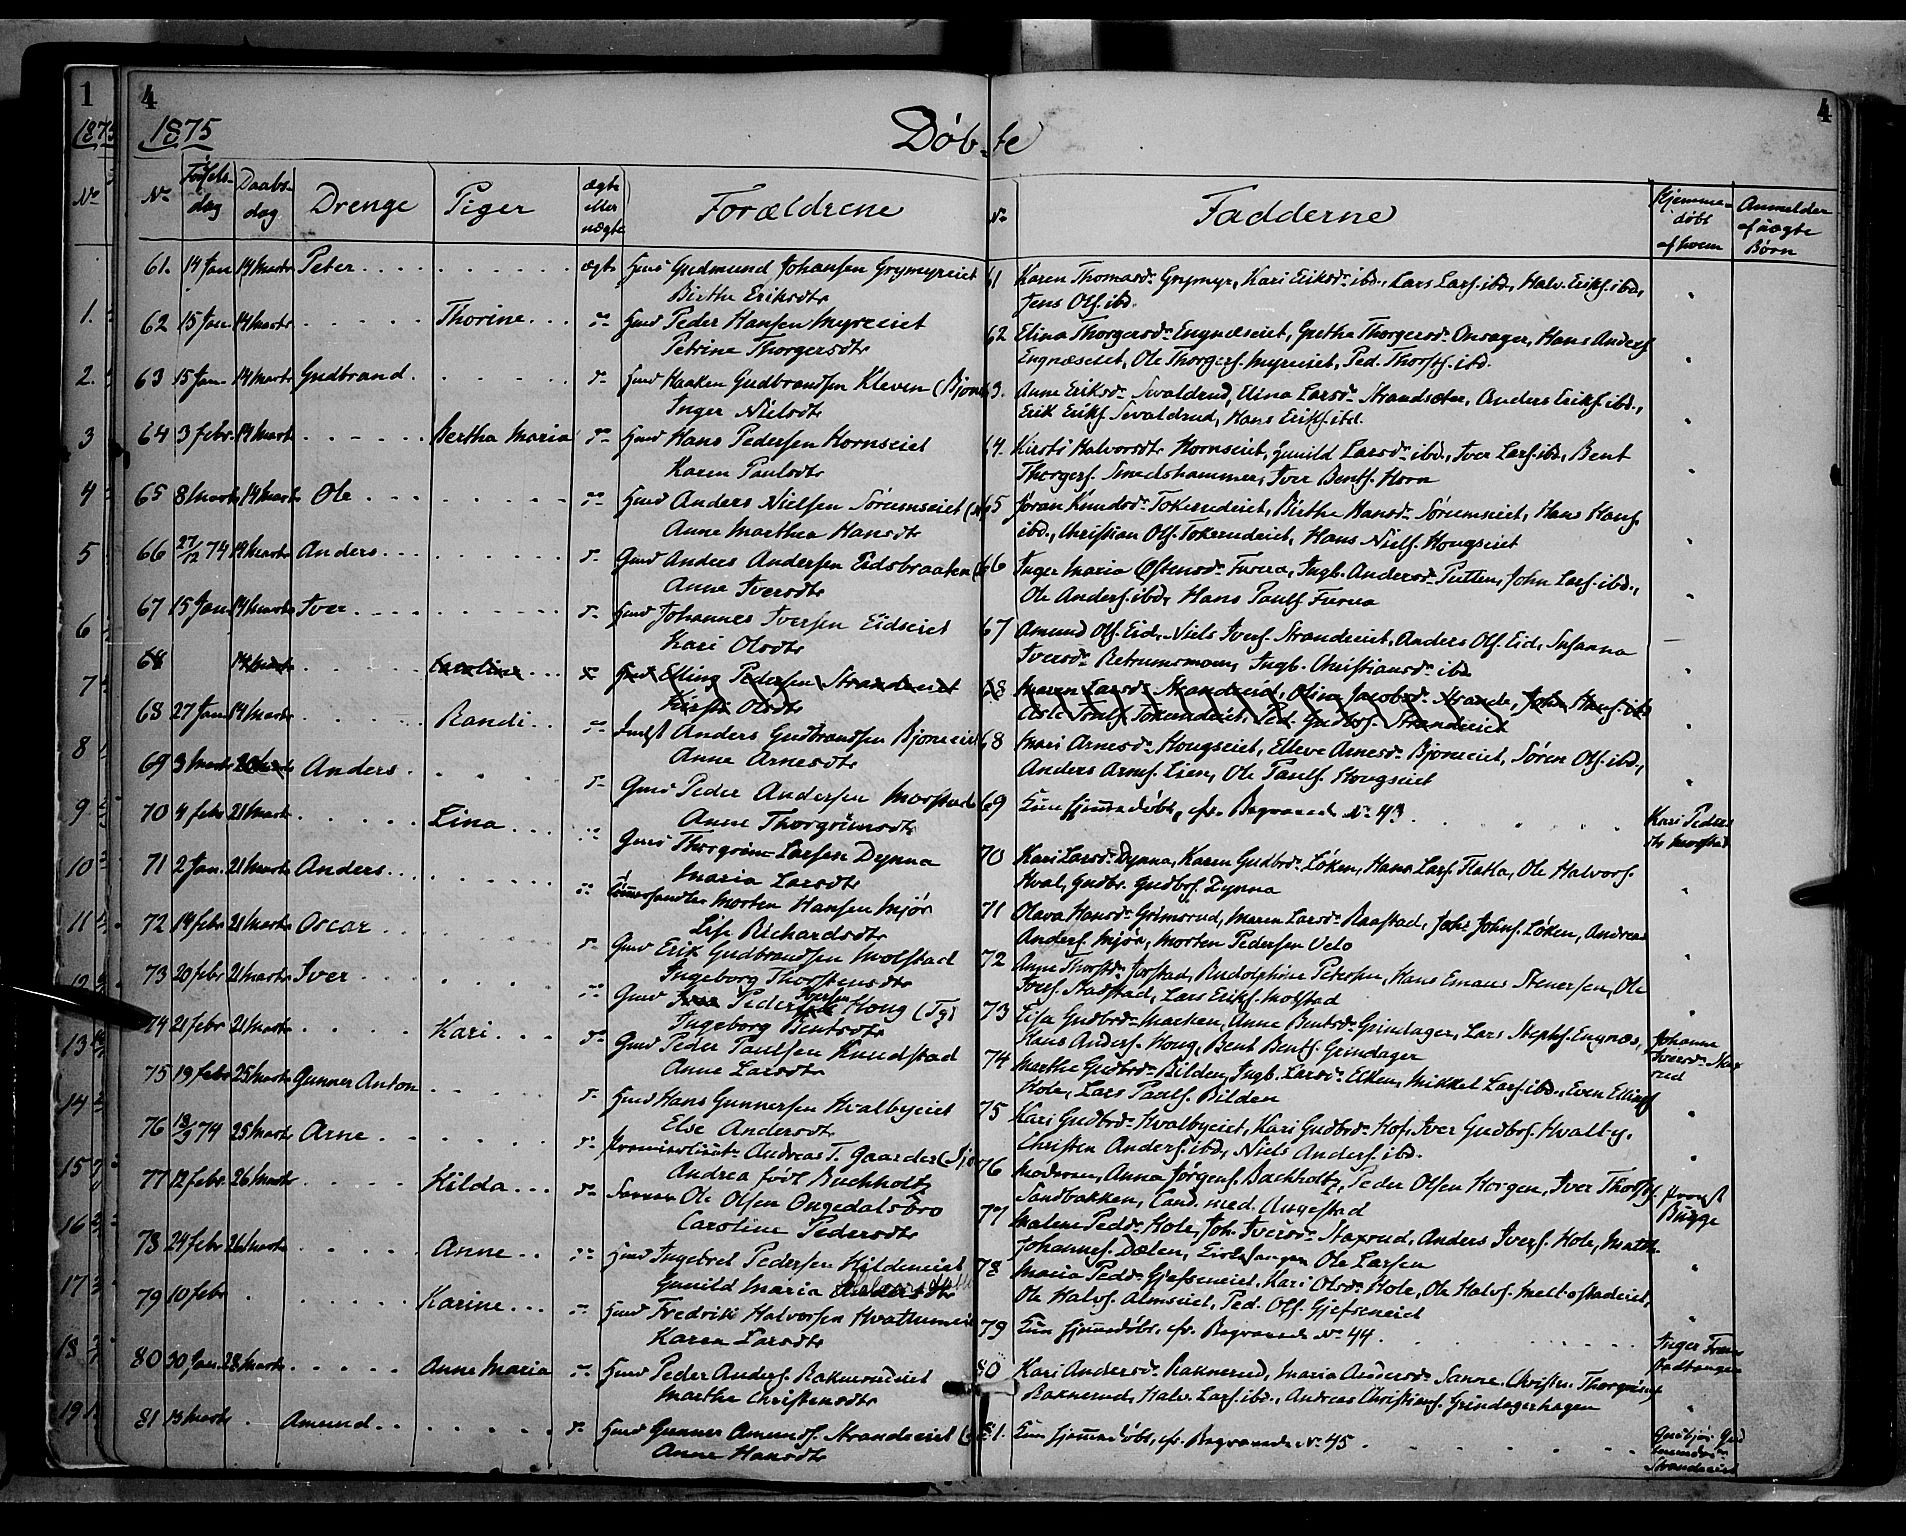 1
4
4
1875
1875
Døbte
No
No
Fødsels-
dag
Daabs-
dag
Drenge
Piger
ægte
eller
uægte
Forældrene
No
Fadderne
Hjemme-
døbt
af hvem
Anmelder
af uægte
Børn
61. 14 Jan 14 Marts Peter . . . ægte Huus Gudmund Johansen Grymyreiet
Birthe Eriksdtr
61 Karen Thomasd. Grymyr, Kari Eriksd. ibd., Lars Lars. ibd., Halv. Eriks. ibd.,
Jens Ols. ibd.
62 15 Jan 14 Marts Thorine . . . Huusd Peder Hansen Myreeiet
Petrine Thorgersdtr
62 Elina Thorgersd. Engnæseiet, Grethe Thorgersd. Onsager, Hans Anders.
Engnæseiet, Ole Thorgers. Myreeiet, Ped. Thorsts. ibd.
63 15 Jan 14 Marts Gudbrand . . . Huusd Haaken Gudbrandsen Kleven (Bjone
Inger Nielsdtr
63. Anne Eriksd. Sevaldrud, Elina Larsd. Strandsæter, Anders Eriks. ibd.,
Erik Eriks. Sevaldrud, Hans Eriks. ibd.
64 3 Febr. 14 Marts Bertha Maria Huusd Hans Pedersen Hornseiet
Karen Paulsdtr
64. Kirsti Halvorsdtr Hornseiet, Gunild Larsd. ibd., Iver Lars. ibd., Bent
Thorgers. Smedshammer, Iver Bents. Horn
65 8 Marts 14 Marts Ole . . . Huusd Anders Nielsen Sørumseiet
Anne Marthea Hansdtr
65 Jøran Knudsd. Tokerudeiet, Birthe Hansd. Sørumseiet, Hans Hans.
ibd., Christian Ols. Tokerudeiet, Hans Niels. Hougseiet
66 27/12 74 14 Marts Anders . . . Gaard Anders Andersen Eidsbraaten
Anne Iversdtr
66 Inger Maria Østensd. Furua, Ingb. Andersd. Putten, John Lars. ibd.,
Ole Anders. ibd., Hans Pauls. Furua
67 15 Jan 14 Marts Iver . . . Huusd Johannes Iversen Eidseiet
Kari Olsdtr
67 Amund Ols. Eid, Niels Ivers. Strandeiet, Anders Ols. Eid, Susanna
Iversd. Betrumsmoen, Ingb. Christiansd. ibd
68 14 Marts Caroline . . . Huusd Elling Pedersen Strandeeiet
Kirsti Olsdtr
68 Maren Larsd. Strandeeiet, Olina Jacobsd. Strande, John Hans. ibd
Asle Pauls. Tokerudeiet, Ped. Gudbrs. Strandeeiet
68 27 Jan 14 Marts Randi . . . Indst Anders Gudbrandsen Bjoneeiet
Anne Arnesdtr
68 Mari Arnesd. Hougseiet, Elleve Arnesd. Bjoneeiet, Søren Ols. ibd.,
Anders Arnes. Lien, Ole Pauls. Hougseiet
69 3 Marts Anders . . . Gaard Peder Andersen Morstad
Anne Thorgrimsdtr
69 Kun hjemmedøbt, cfr. Begravede No 43 . . .
Kari Peders
dtr Morstad
70 4 Febr 21 Marts Lina . . . Gaard Thorgrim Larsen Dynna
Maria Larsdtr
70 Kari Larsd. Dynna, Karen Gudbrd. Løken, Hans Lars. Flatla, Ole Halvors.
Hval, Gudbr. Gudbrs. Dynna
71 2 Jan. 21 Marts Anders . . . Tømmerhandler Morten Hansen Mjør
Lise Richardsdtr
71 Olava Hansd. Grimsrud, Maren Larsd. Raastad, Joh. Johns. Løken, Andreas
Anders. Mjør, Morten Pedersen Velo
72 14 Febr 21 Marts Oscar . . . Gaard Erik Gudbrandsen Molstad
Ingeborg Thorstensdtr
72 Anne Thorstd. Jorstad, Rudolphine Petersen, Hans Enan Stenersen, Ole
Ivers. Stadstad, Lars Eriks. Molstad
73 20 Febr 21 Marts Iver . . . Gaard Peder Iversen Houg
Ingeborg Bentsdtr
73 Lisa Gudbrd. Marken, Anne Bentsd. Grindager, Lars Stephs. Engnæs,
Hans Anders. Houg, Bent Bents. Grindager
74 21 Febr 21 Marts Kari . . . Gaard Peder Paulsen Knudstad
Anne Larsdtr
74 Marthe Gudbrd. Bilden, Ingb. Larsd. Elken, Mikkel Lars. ibd., Even Ellings.
Hole, Lars Pauls. Bilden
Johanne
Iversd. Stax
rud
75 19 Febr 25 Marts Gunner Anton . . . Huusd Hans Gunnersen Hvalbyeiet
Else Andersdtr
75 Kari Gudbrd. Hvalbyeiet, Kari Gudbrd. Hof, Iver Gudbrs. Hvalby,
Christen Anders. ibd., Niels Anders. ibd.
76 74 25 Marts Arne . . . Andreas T. Gaarder
Andrea født Buchholtz
76 Moderen, Anna Jørgens. Buchholtz, Peder Olsen Horgen, Iver Thorsts.
Sandbakken, Cand. med. Angestad
Provst
Bugge
77 12 Febr. 26 Marts Hilda . . . Ole Olsen Ongedalsbro
Caroline Pedersdtr
77 Malene Pedd. Hole, Joh. Iversd. Staxrud, Anders Ivers. Hole, Math.
Johannes. Dælen, Kirkesanger Ole Larsen
78 24 Febr 26 Marts Anne . . . Huusd Ingebret Pedersen Hildeneiet
Gunild Maria
78 Maria Pedd. Gjefseneiet, Kari Olsd. Hole, Ole Halvs. Melbostadeiet,
Ole Halvs. Almseiet, Ped. Ols. Gjefseneiet
79 10 Febr Karine . . . Huusd Fredrik Halvorsen Hvattumeiet
Karen Larsdtr
79 Kun hjemmedøbt, cfr. Begravede No 44 . . .
Inger
80 30 Jan. 28 Marts Anne Maria Huusd Peder Anders. Raknerudeiet
Marthe Christensdtr
80 Kari Andersd. Raknerud, Maria Andersd. Sanne, Christen Thorgrims.
Raknerud, Halv. Lars. ibd., Andreas Christians. Grindagerhagen
81 13 Marts Amund . . . Huusd Gunner Amunds. Strandeeiet
Anne Hansdtr
81. Kun hjemmedøbt, cfr. Begravede No 45 . . .
Gudbjør Gud
mundsd.
Strandeeiet
1.
2.
3
4
5
6
7
8
9
10
11
12
13
14
15
16
17
18
19